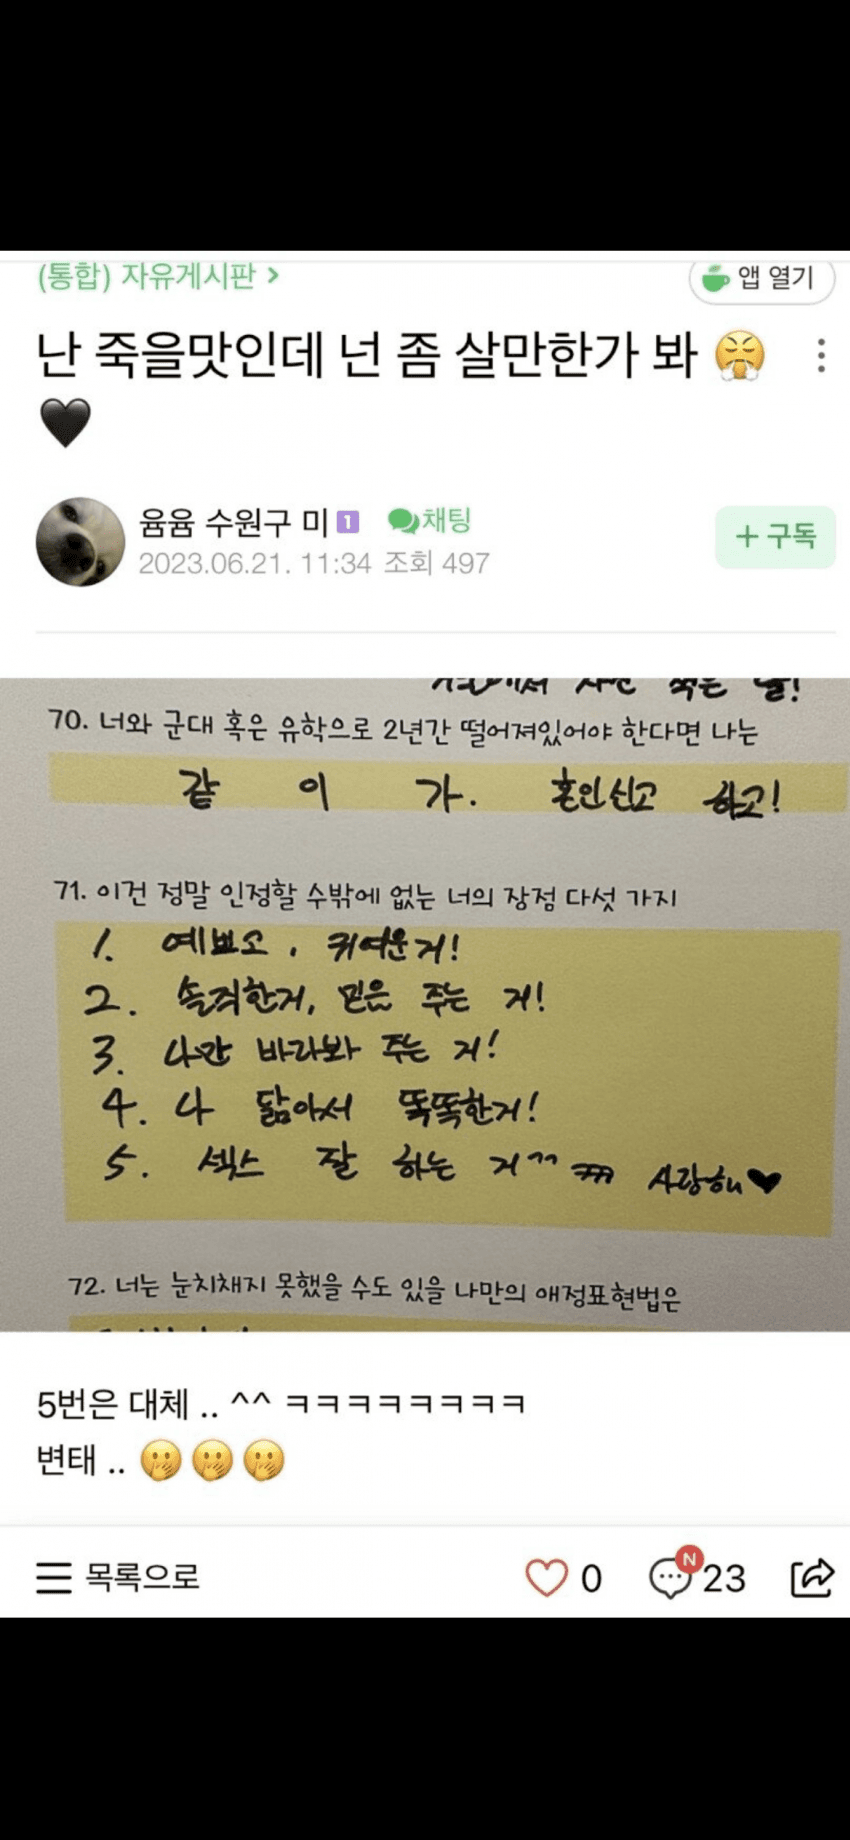 (통합) 자유게시판 >
앱 열기
난 죽을맛인데 넌 좀 살만한가 봐 😤
🖤
윰윰 수원구 미 1 채팅
2023.06.21. 11:34 조회 497
+ 구독
70. 너와 군대 혹은 유학으로 2년간 떨어져있어야 한다면 나는
같이 가. 혼인신고 하고!
71. 이건 정말 인정할 수밖에 없는 너의 장점 다섯 가지
1. 예쁘고, 귀여운거!
2. 솔직한거, 믿음 주는 거!
3. 나만 바라봐 주는 거!
4. 나 닮아서 똑똑한거!
5. 섹스 잘 하는 거^^ ㅋㅋㅋ 사랑해♥
72. 너는 눈치채지 못했을 수도 있을 나만의 애정표현법은
5번은 대체 .. ^^ ㅋㅋㅋㅋㅋㅋㅋㅋ
변태 .. 🫢🫢🫢
목록으로
0
N
23